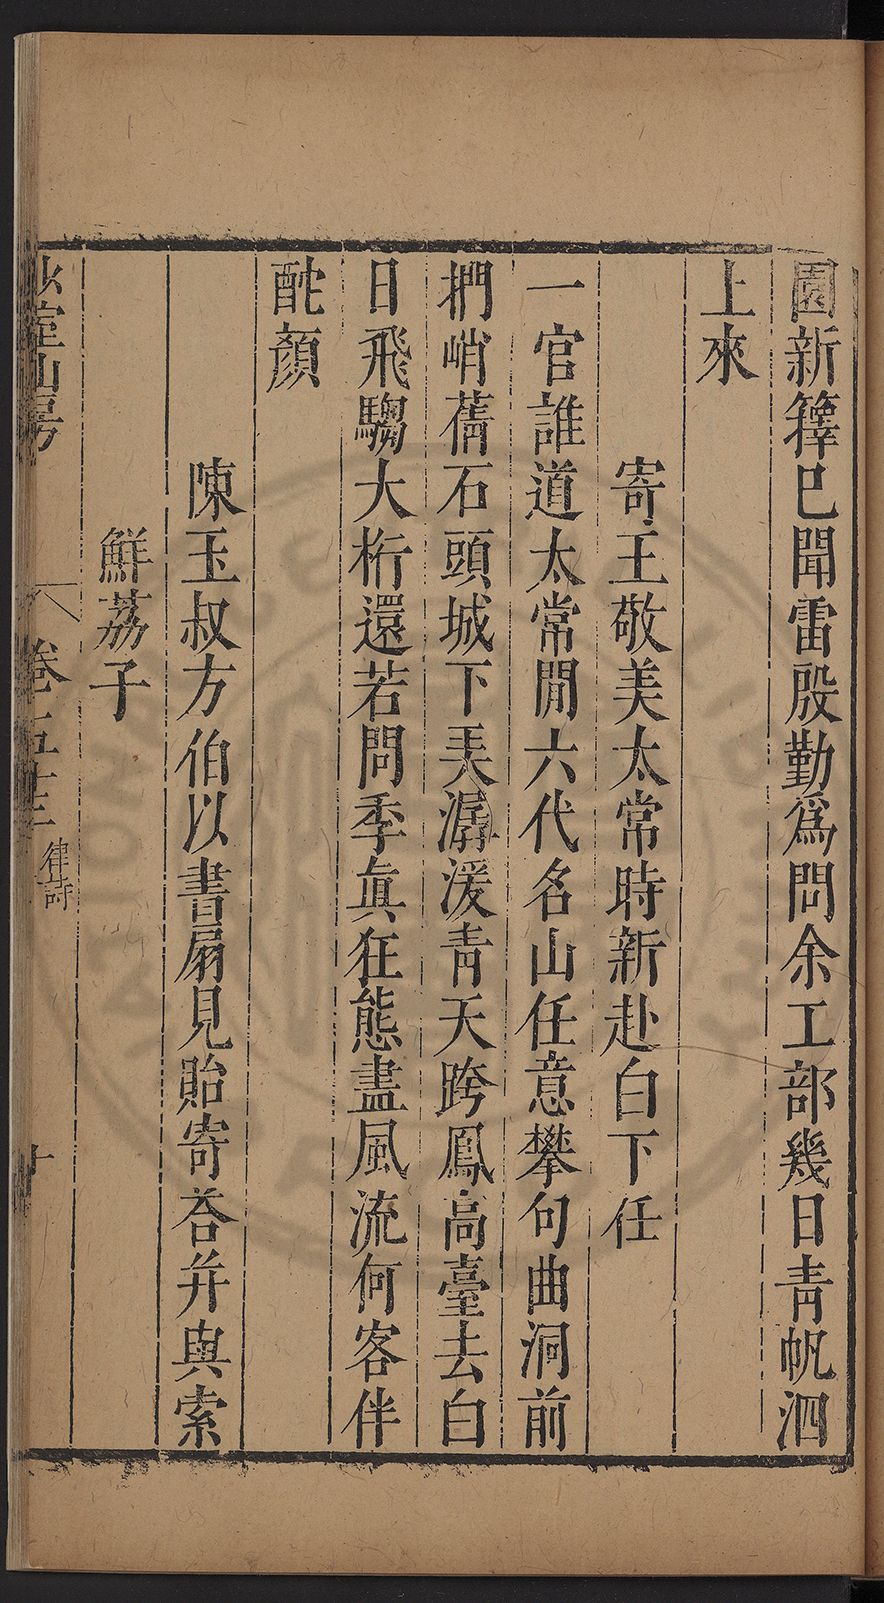 園新籜已聞雷殷勤爲問余工部幾日青帆泗
上來
寄王敬美太常時新赴白下任
一官誰道太常閒六代名山任意攀句曲洞前
捫峭蒨石頭城下美潺湲青天跨鳳高臺去白
日飛騶大桁還若問季眞狂態盡風流何客伴
酡顏
陳玉叔方伯以書扇見貽寄荅并與索
鮮荔子
山房
卷五十三
律詩
十